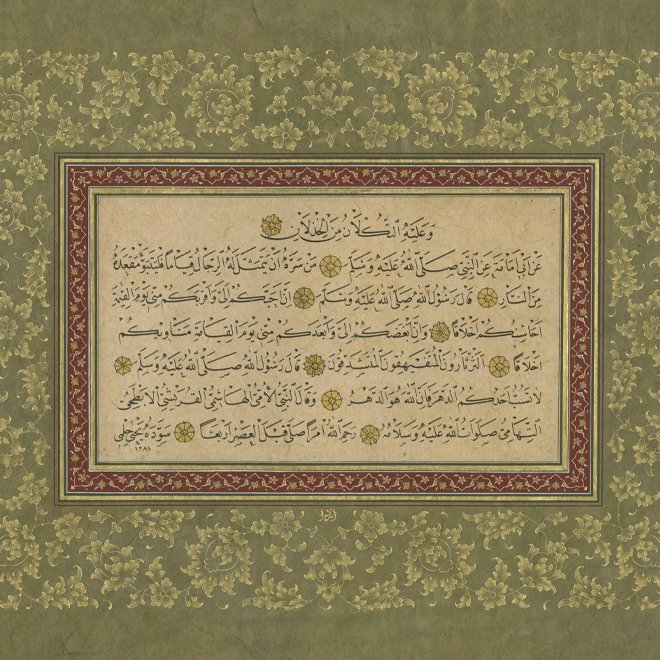 وَعَلَيْهِ التُّكْلَانُ مِنَ الْخِذْلَانِ
عَنْ اَبِي اُمَامَةَ عَنِ النَّبِيِّ صَلَّى اللهُ عَلَيْهِ وَسَلَّمَ مَنْ سَرَّهُ اَنْ يَتَمَثَّلَ لَهُ الرِّجَالُ قِيَامًا فَلْيَتَبَوَّءْ مَقْعَدَهُ
مِنَ النَّارِ قَالَ رَسُولُ اللهِ صَلَّى اللهُ عَلَيْهِ وَسَلَّمَ اِنَّ اَحَبَّكُمْ اِلَيَّ وَاَقْرَبَكُمْ مِنِّي يَوْمَ الْقِيٰمَةِ
اَحَاسِنُكُمْ اَخْلَاقًا وَاِنَّ اَبْغَضَكُمْ اِلَيَّ وَاَبْعَدَكُمْ مِنِّي يَوْمَ الْقِيَامَةِ مَسَاوِيكُمْ
اَخْلَاقًا اَلثَّرْثَارُونَ الْمُتَفَيْهِقُونَ الْمُتَشَدِّقُونَ قَالَ رَسُولُ اللهِ صَلَّى اللهُ عَلَيْهِ وَسَلَّمَ
لَا يَسُبُّ اَحَدُكُمُ الدَّهْرَ فَاِنَّ اللهَ هُوَ الدَّهْرُ وَقَالَ النَّبِيُّ الْاُمِّيُّ الْهَاشِمِيُّ الْقُرَيْشِيُّ الْاَبْطَحِيُّ
التِّهَامِيُّ صَلَوَاتُ اللهِ عَلَيْهِ وَسَلَامُهُ رَحِمَ اللهُ امْرَأً صَلَّى قَبْلَ الْعَصْرِ اَرْبَعًا سَوَّدَهُ يحيى حلمي
١٢٨١